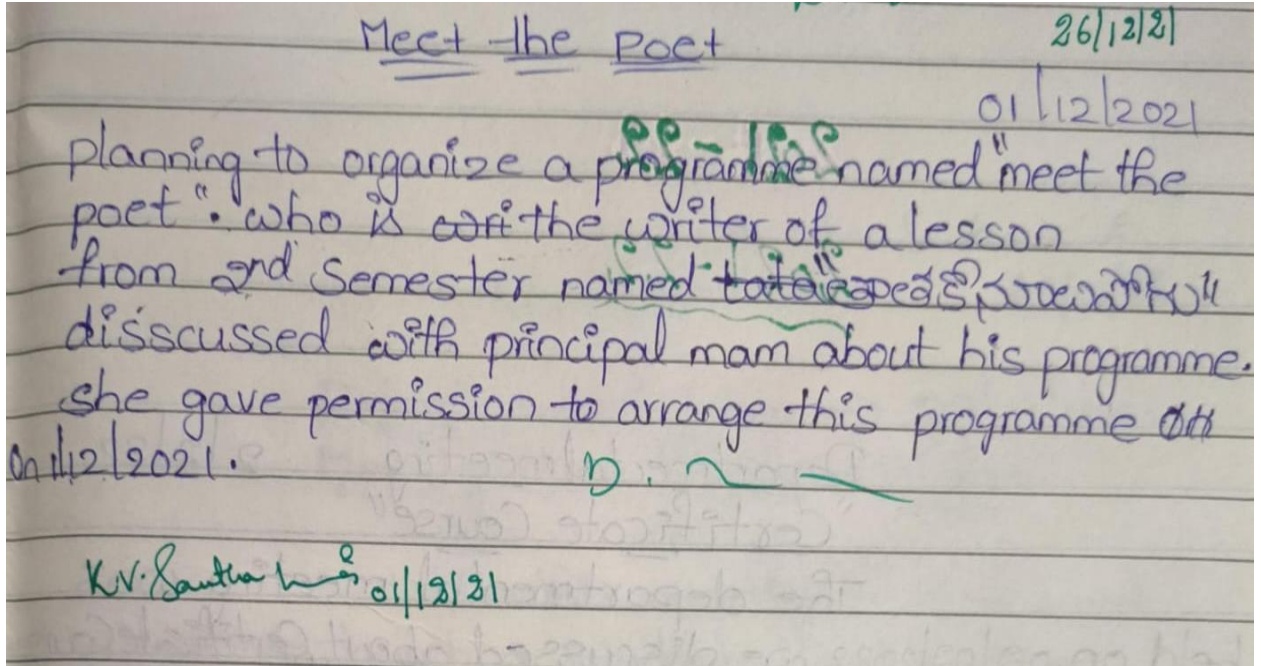 26/12/21
Meet the Poet
01/12/2021
planning to organize a programme named "meet the
poet". who is the writer of a lesson
from 2nd Semester named
disscussed with principal mam about his programme.
she gave permission to arrange this programme
on 1/12/2021.
D.
K.V. Santha 01/12/21